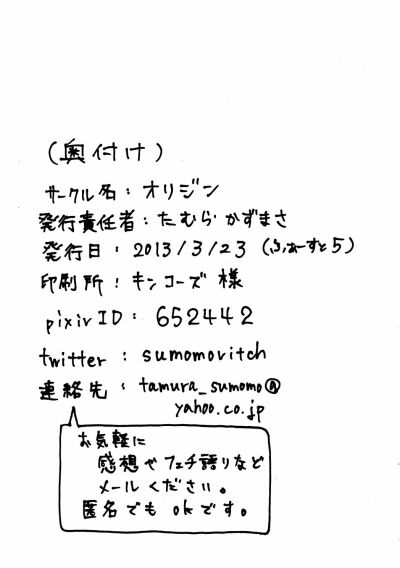 (奥付け)
サークル名:オリジン
発行責任者:たむらかずまさ
発行日:2013/3/23(ふぁーすと5)
印刷所:キンコーズ様
pixiv ID:652442
twitter:sumomovitch
連絡先:tamura_sumomo@
yahoo.co.jp
お気軽に
感想やフェチ語りなど
メールください。
匿名でもokです。